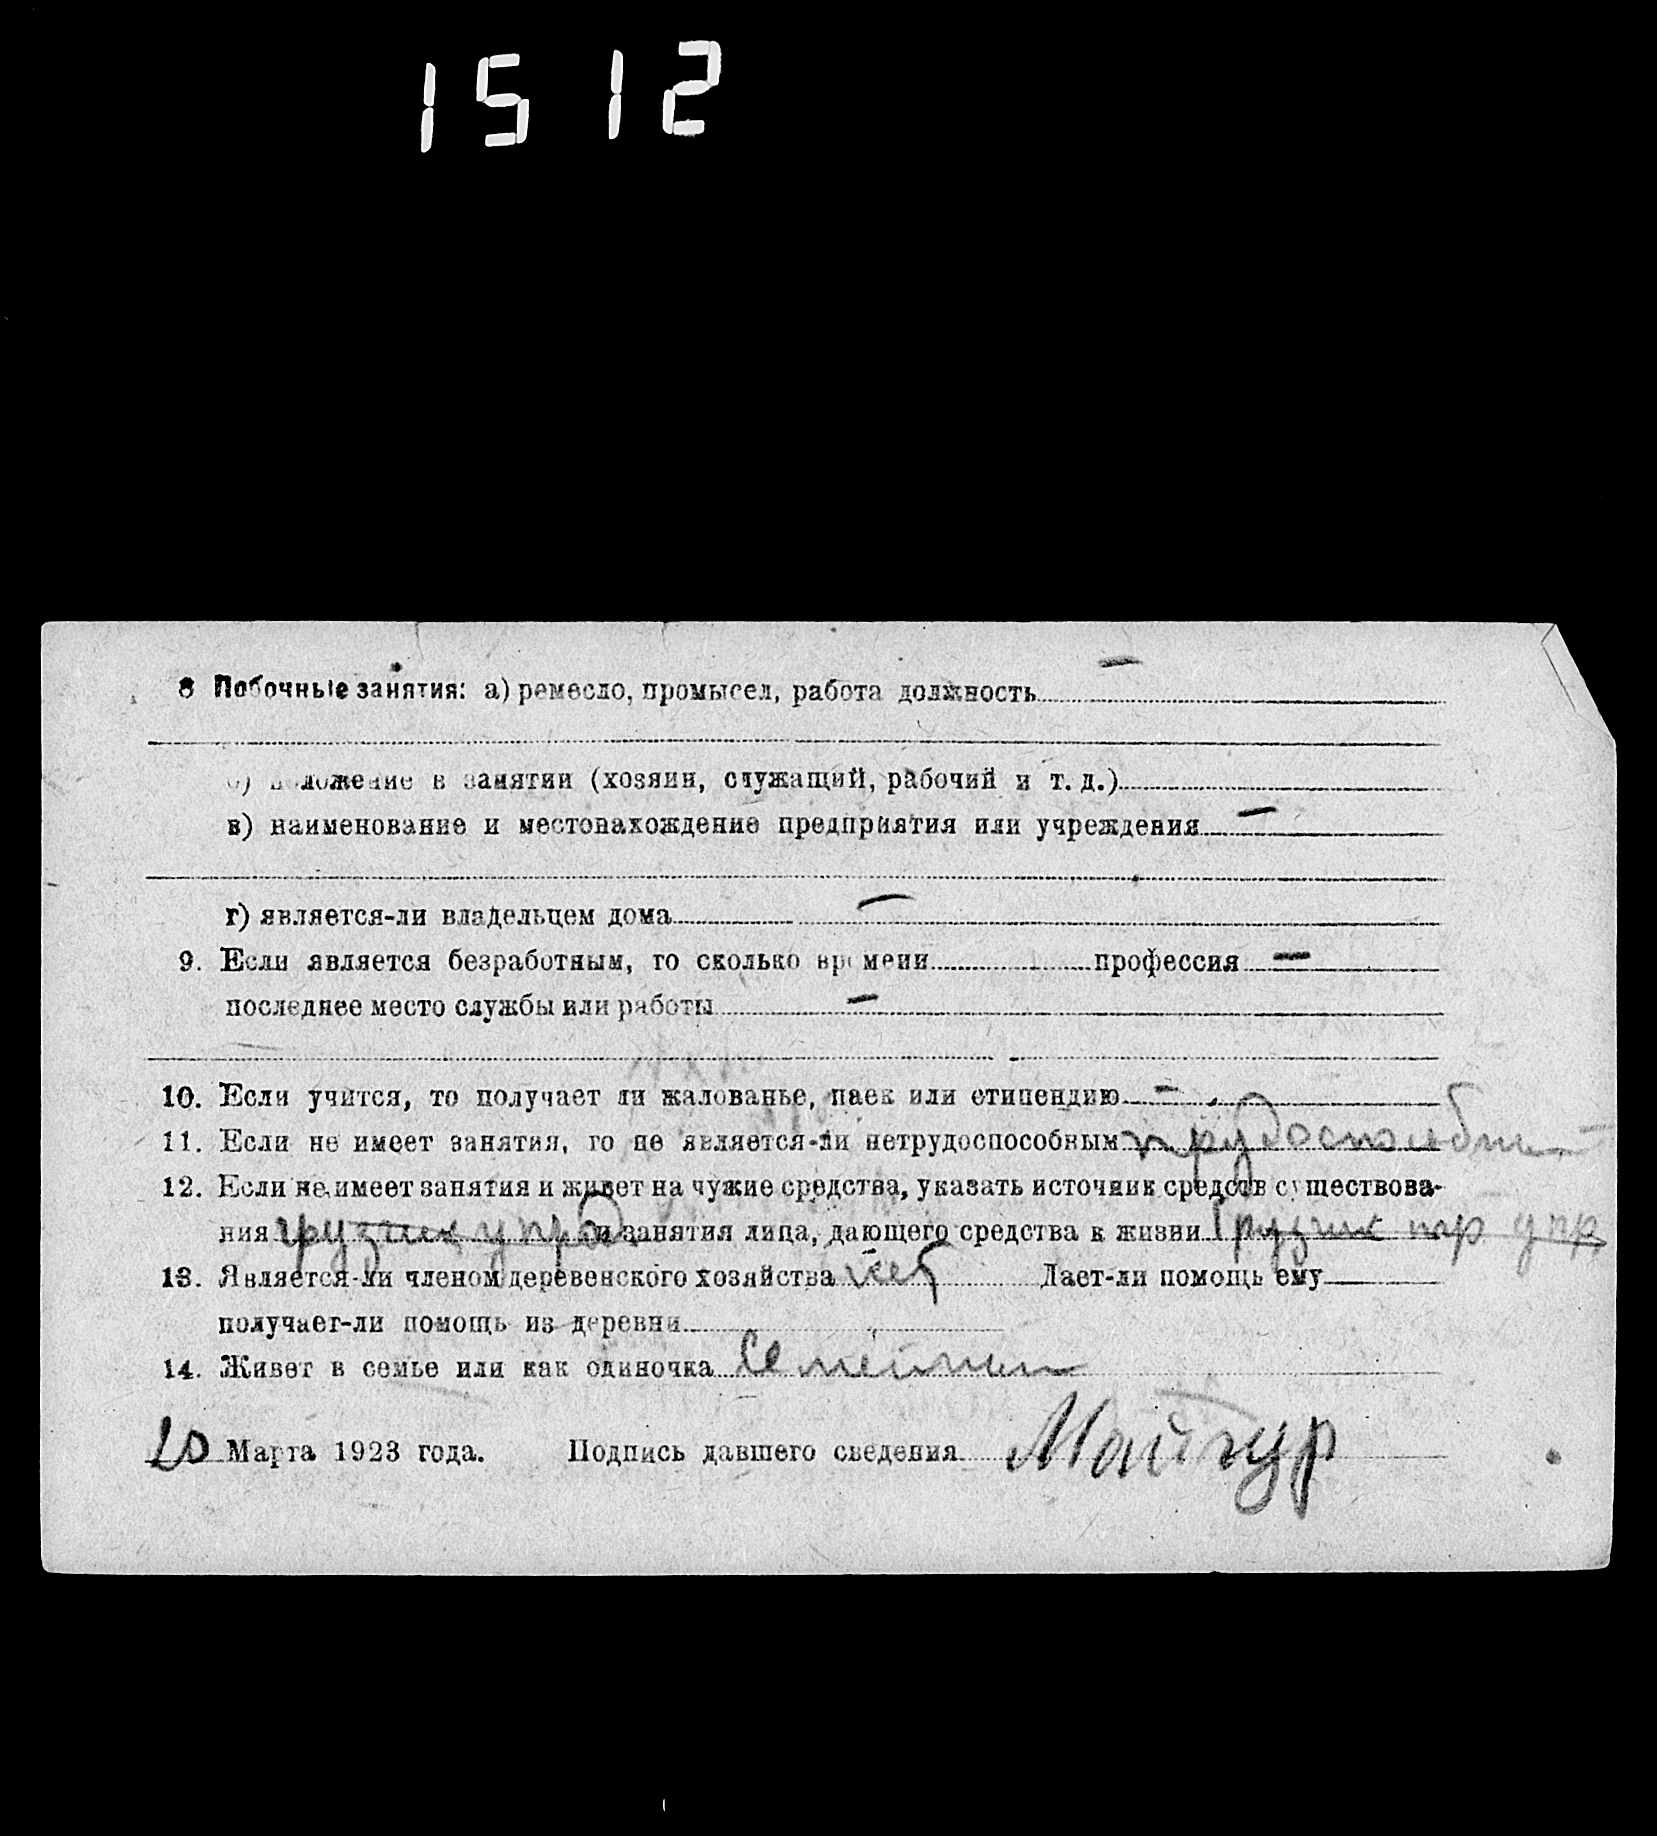 1512
8 Побочные занятия: а) ремесло, промысел, работа должность —
б) положение в занятии (хозяин, служащий, рабочий и т. д.)
в) наименование и местонахождение предприятия или учреждения —
г) является-ли владельцем дома —
9. Если является безработным, то сколько времени профессия —
последнее место службы или работы —
10. Если учится, то получает ли жалованье, паек или стипендию —
11. Если не имеет занятия, то не является-ли нетрудоспособным
12. Если не имеет занятия и живет на чужие средства, указать источник средств существова-
ния грузчик и занятия лица, дающего средства к жизни Грузчик
13. Является-ли членом деревенского хозяйства нет Дает-ли помощь ему
получает-ли помощь из деревни
14. Живет в семье или как одиночка
20 Марта 1923 года. Подпись давшего сведения Майгур